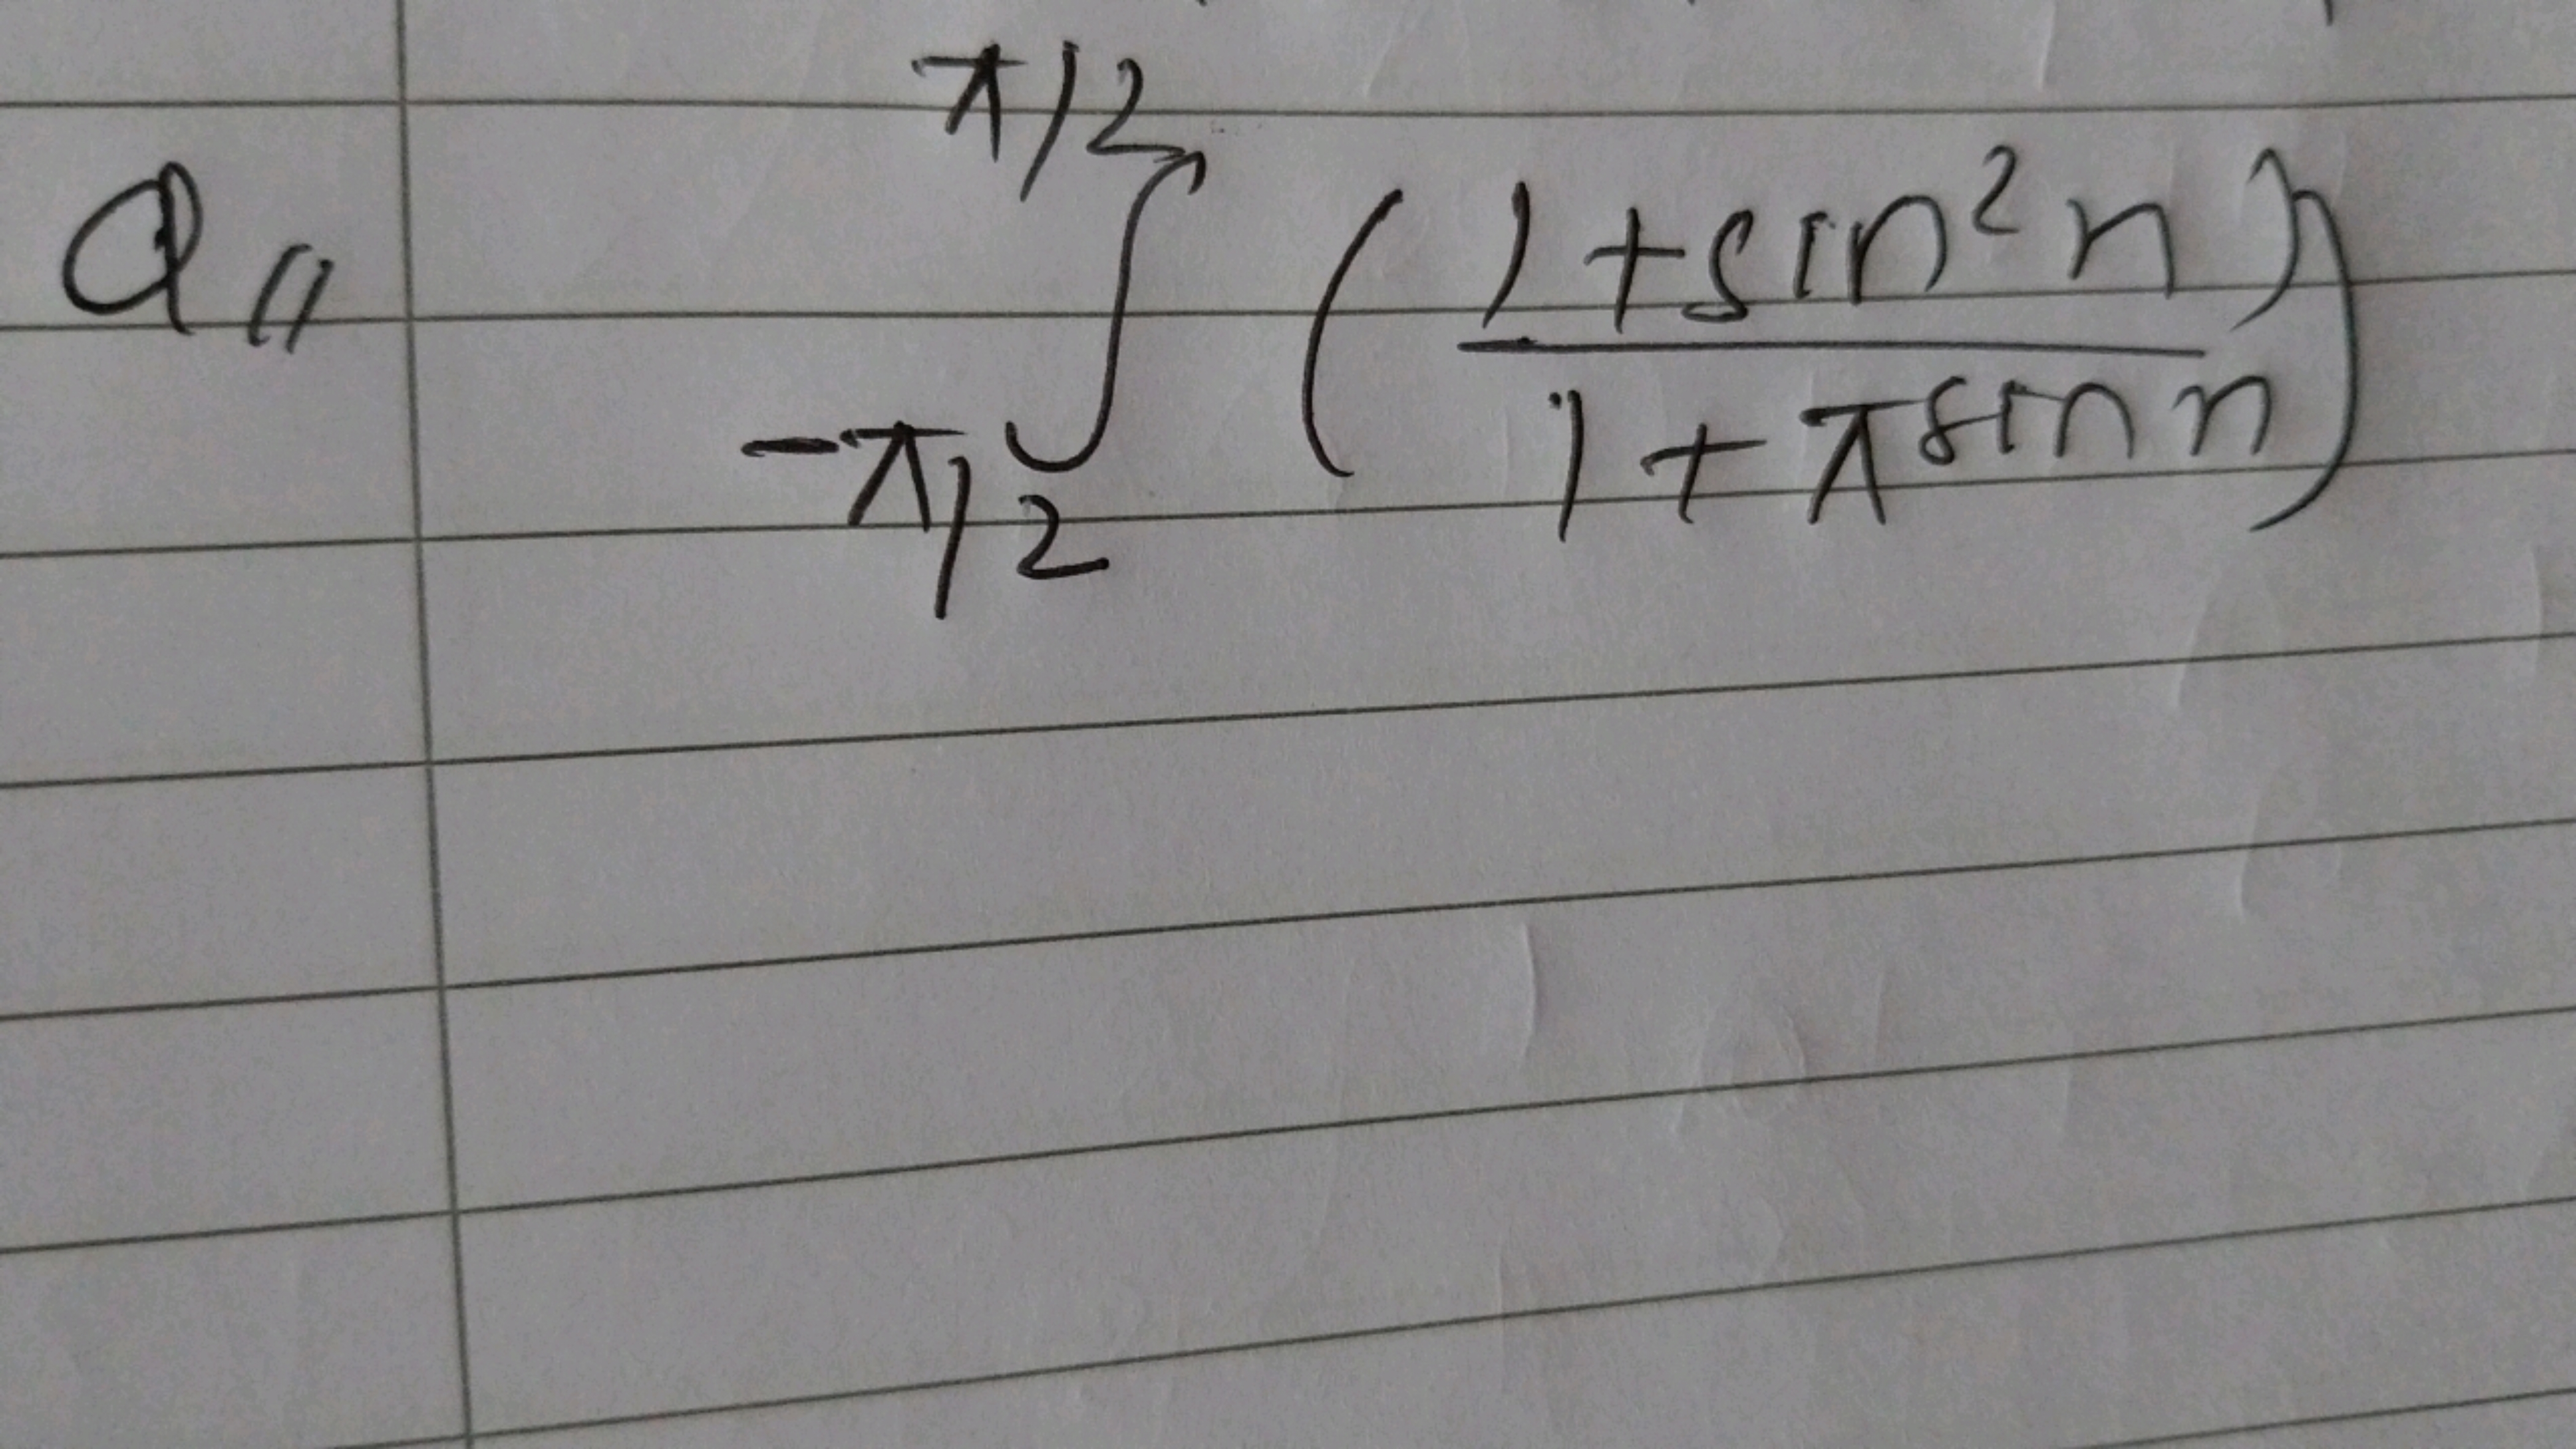 Q11 ∫_{-π/2}^{π/2} ( (1+sin²n) / (1+π^{sin n}) )